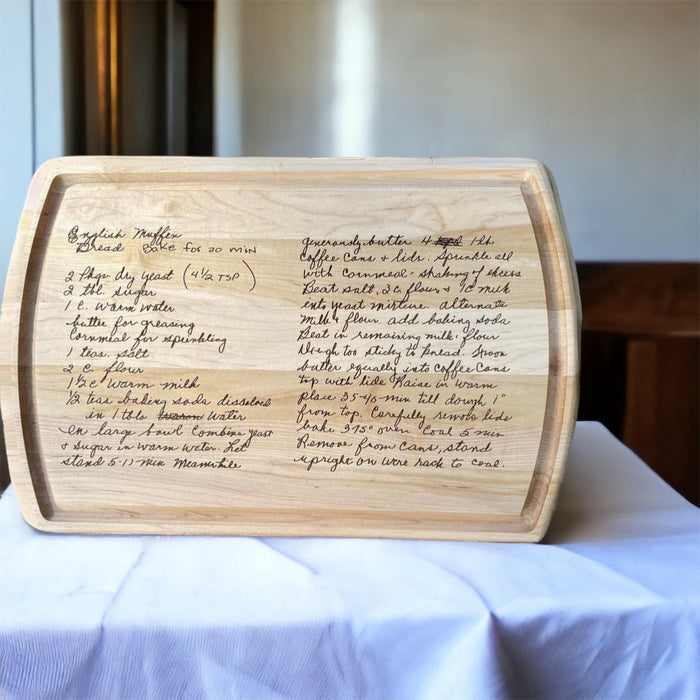 English Muffin
Bread Bake for 20 min
2 Pkgs dry yeast (4 1/2 TSP)
2 tbl sugar
1 c. warm water
butter for greasing
cornmeal for sprinkling
1 teas. salt
2 c. flour
1 1/2 c warm milk
1/2 teas baking soda dissolved
in 1 tble water
In large bowl combine yeast
+ sugar in warm water. Let
stand 5-1 min Meanwhile
generously butter 4 1 lb
coffee cans + lids. Sprinkle all
with cornmeal - shaking off excess
Beat salt, 3 c. flour + 1c milk
into yeast mixture. alternate
milk + flour add baking soda
Beat in remaining milk + flour
Dough too sticky to knead. Spoon
batter equally into coffee cans
top with lids Raise in warm
place 35-40 min till dough 1"
from top. Carefully remove lids
bake 375° oven Cool 5 min
Remove from cans, stand
upright on wire rack to cool.